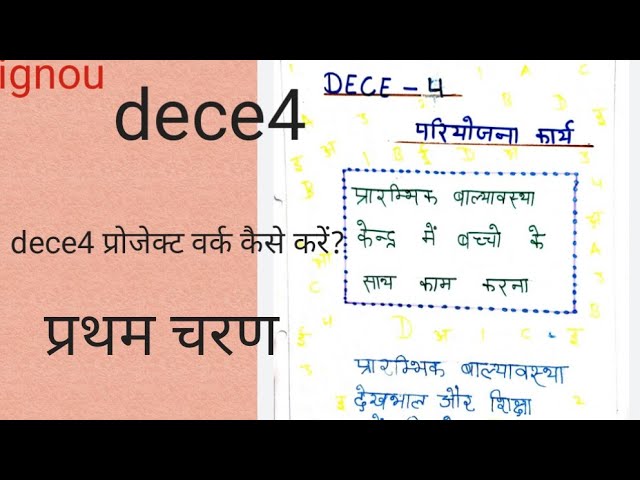 ignou
dece4
dece4 प्रोजेक्ट वर्क कैसे करें?
प्रथम चरण
DECE - 4
परियोजना कार्य
प्रारम्भिक बाल्यावस्था
केन्द्र में बच्चो के
साथ काम करना
प्रारम्भिक बाल्यावस्था
देखभाल और शिक्षा